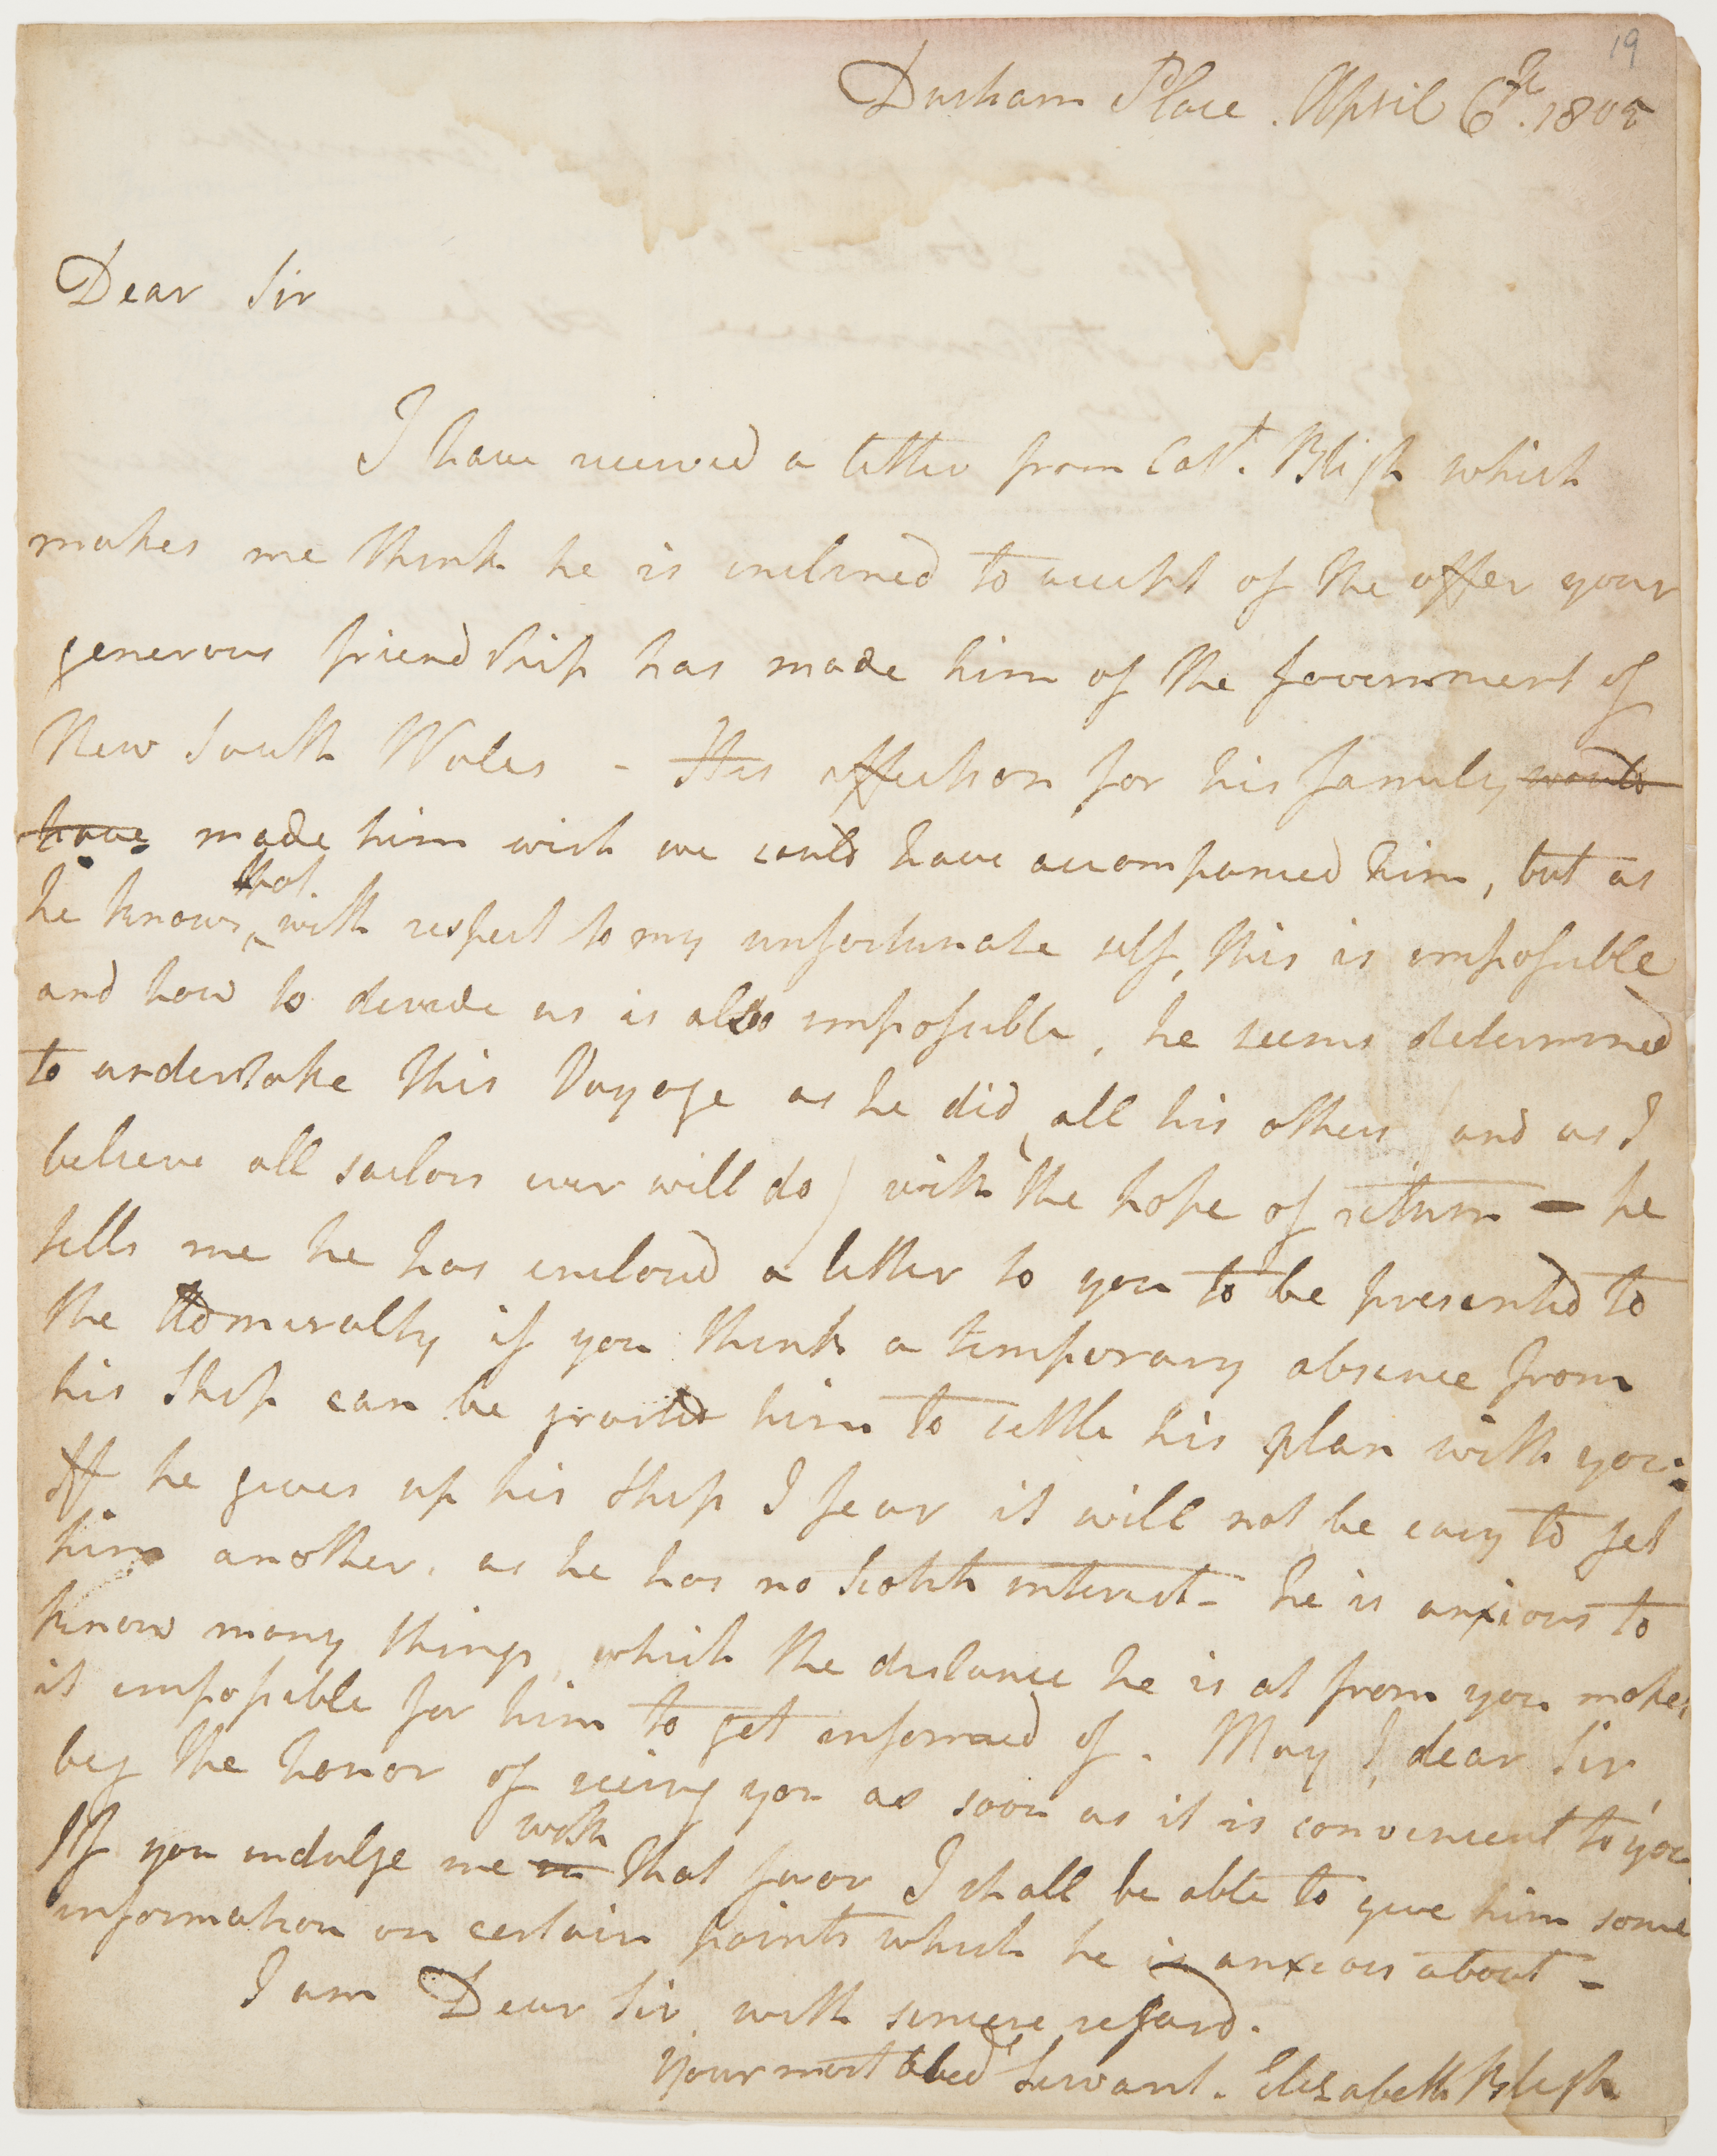 19
Durham Place . April 6th. 1805
Dear Sir
I have received a letter from Capt. Bligh which
makes me think he is inclined to accept of the offer your
generous friendship has made him of the Government of
New South Wales - His affection for his family would
have made him wish we could have accompanied him, but as
that
he knows, with respect to my unfortunate self, this is impossible
and how to devide us is also impossible, he seems determined
to undertake this Voyage as he did all his others (and as I
believe all sailors ever will do) with the hope of return - he
tells me he has enclosed a letter to you to be presented to
the Admiralty if you think a temporary absence from
his Ship can be granted him to settle his plan with you:
If he gives up his Ship I fear it will not be easy to get
him another, as he has no Scotch interest - he is anxious to
know many things, which the distance he is at from you makes
it impossible for him to get informed of. May I, dear Sir
beg the honor of seeing you as soon as it is convenient to you
with
If you indulge me in that favor I shall be able to give him some
information on certain points which he is anxious about -
I am Dear Sir, with sincere regard.
Your most obed Servant. Elizabeth Bligh